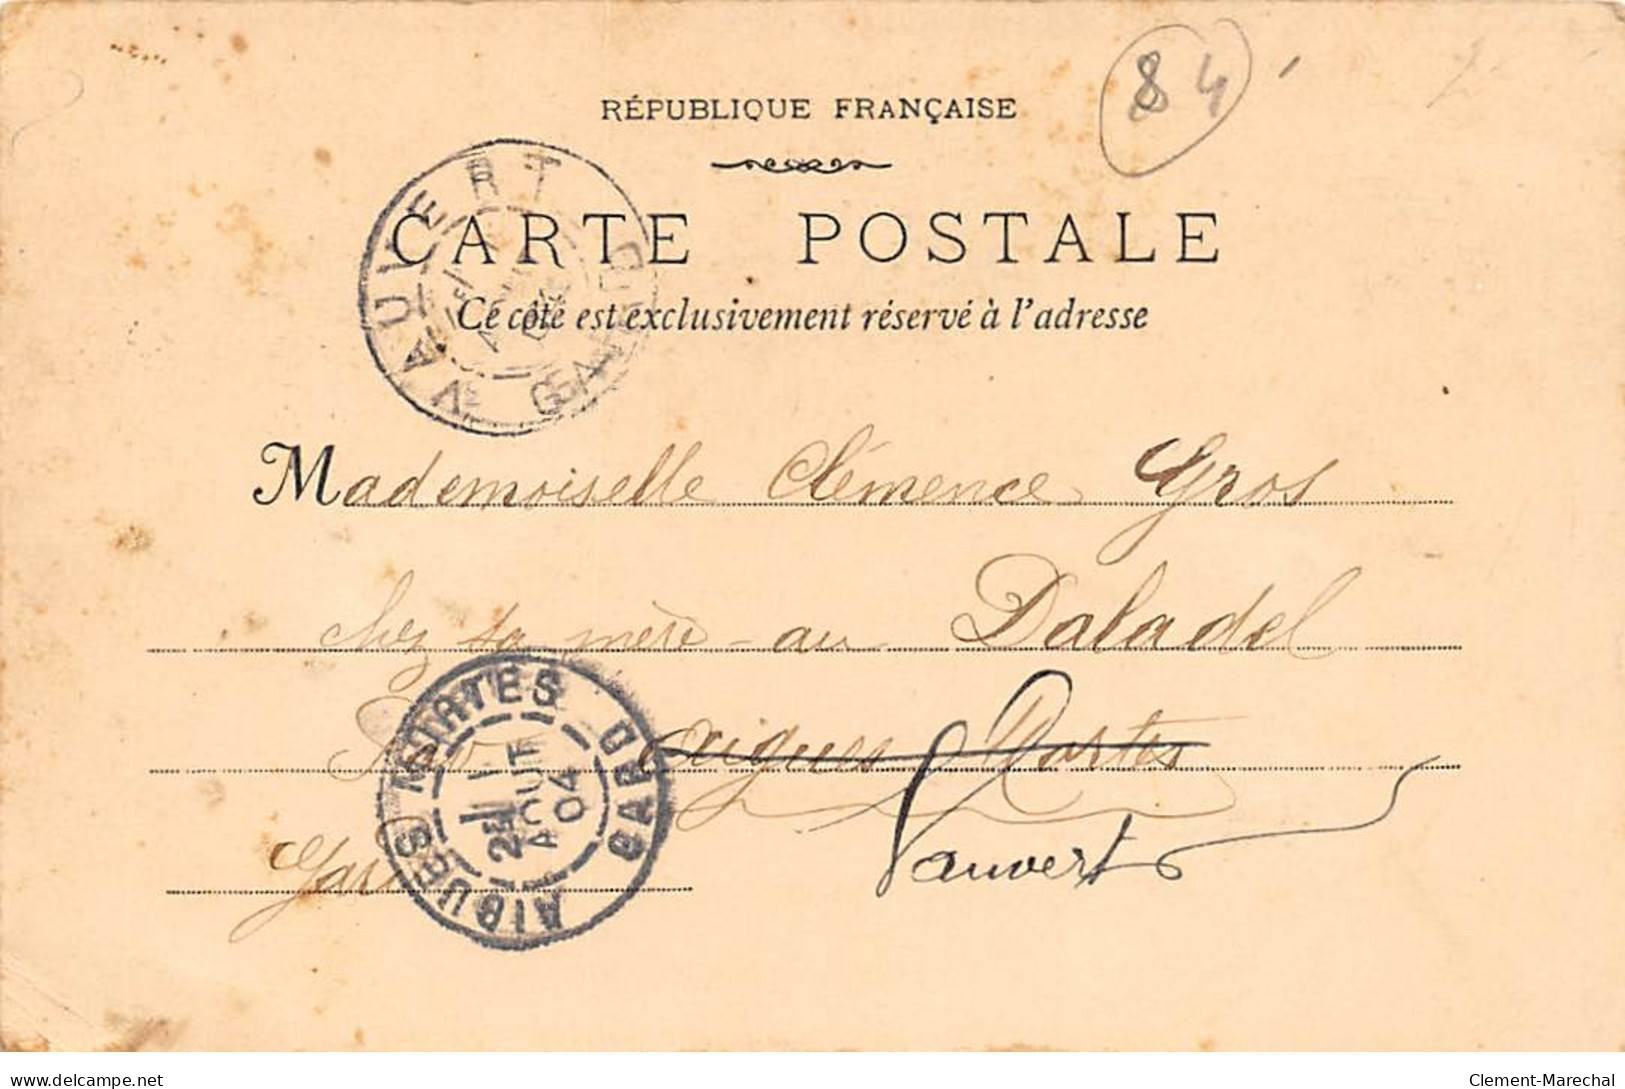 84
RÉPUBLIQUE FRANÇAISE
CARTE POSTALE
Ce côté est exclusivement réservé à l'adresse
VAUVERT GARD
Mademoiselle Clémence Gros
chez sa mère - au Daladel
Aigues Mortes
AIGUES MORTES GARD
AOUT
04
Gard
Vauvert
www.delcampe.net
Clement-Marechal